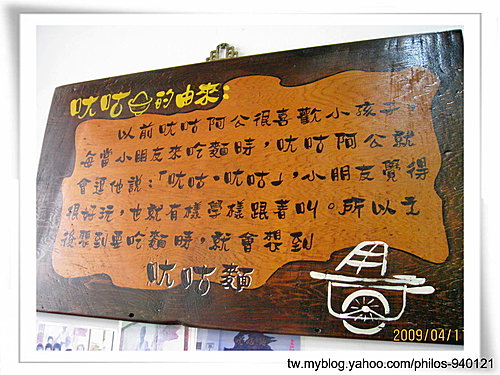 呔咕的由來:
以前呔咕阿公很喜歡小孩子。
每當小朋友來吃麵時,呔咕阿公就
會逗他說:「呔咕。呔咕」,小朋友覺得
很好玩,也就有樣學樣跟著叫。所以之
後想到要吃麵時,就會想到
呔咕麵
2009/04/11
tw.myblog.yahoo.com/philos-940121